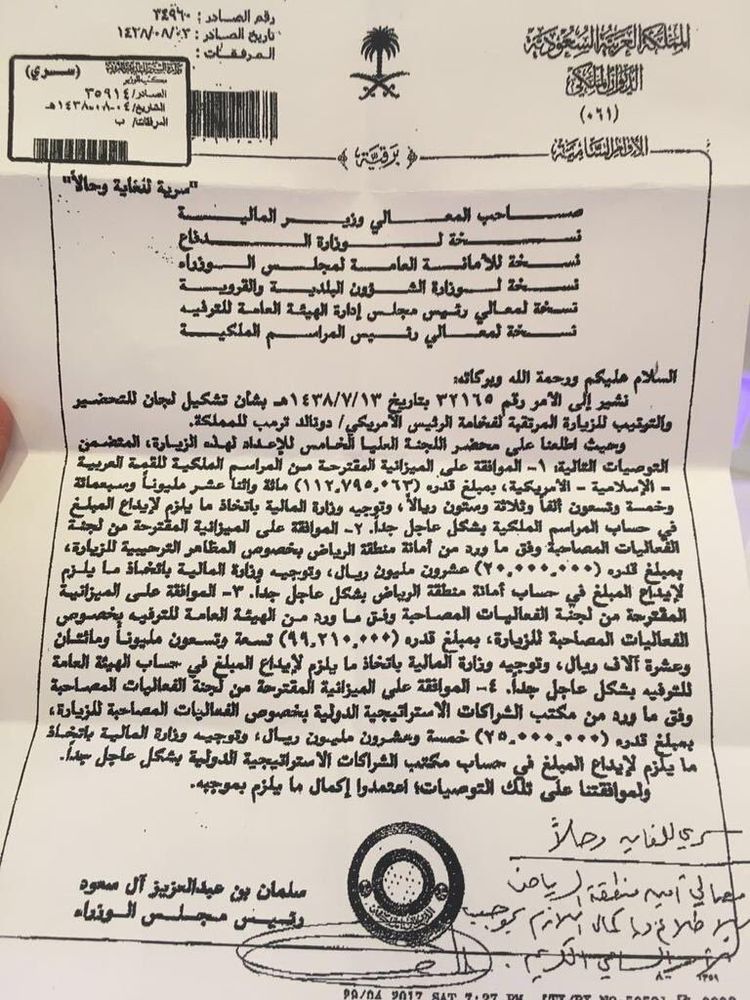 المملكة العربية السعودية
الديوان الملكي
(٠٦١)
الأوامر السامية
برقية
رقم الصادر : ٣٤٩٦٠
تاريخ الصادر : ١٤٣٨/٠٨/٠٣
المرفقات :
(سري)
مكتب الوزير
الصادر/ ٣٥٩١٤
التاريخ/ ٠٤-٠٨-١٤٣٨هـ
المرفقات/ ب
"سرية للغاية وحالاً"
صاحب المعالي وزير المالية
نسخة لوزارة الدفاع
نسخة للأمانة العامة لمجلس الوزراء
نسخة لوزارة الشؤون البلدية والقروية
نسخة لمعالي رئيس مجلس إدارة الهيئة العامة للترفيه
نسخة لمعالي رئيس المراسم الملكية
السلام عليكم ورحمة الله وبركاته:
نشير إلى الأمر رقم ٣٢١٦٥ بتاريخ ١٤٣٨/٧/١٣هـ بشأن تشكيل لجان للتحضير
والترتيب للزيارة المرتقبة لفخامة الرئيس الأمريكي/ دونالد ترمب للمملكة.
وحيث اطلعنا على محضر اللجنة العليا الخامس للإعداد لهذه الزيارة، المتضمن
التوصيات التالية: ١- الموافقة على الميزانية المقترحة من المراسم الملكية للقمة العربية
- الإسلامية - الأمريكية، بمبلغ قدره (١١٢,٧٩٥,٠٦٣) مائة واثنا عشر مليوناً وسبعمائة
وخمسة وتسعون ألفاً وثلاثة وستون ريالاً، وتوجيه وزارة المالية باتخاذ ما يلزم لإيداع المبلغ
في حساب المراسم الملكية بشكل عاجل جداً. ٢- الموافقة على الميزانية المقترحة من لجنة
الفعاليات المصاحبة وفق ما ورد من أمانة منطقة الرياض بخصوص المظاهر الترحيبية للزيارة،
بمبلغ قدره (٢٠,٠٠٠,٠٠٠) عشرون مليون ريال، وتوجيه وزارة المالية باتخاذ ما يلزم
لإيداع المبلغ في حساب أمانة منطقة الرياض بشكل عاجل جداً. ٣- الموافقة على الميزانية
المقترحة من لجنة الفعاليات المصاحبة وفق ما ورد من الهيئة العامة للترفيه بخصوص
الفعاليات المصاحبة للزيارة، بمبلغ قدره (٩٩,٢١٠,٠٠٠) تسعة وتسعون مليوناً ومائتان
وعشرة آلاف ريال، وتوجيه وزارة المالية باتخاذ ما يلزم لإيداع المبلغ في حساب الهيئة العامة
للترفيه بشكل عاجل جداً. ٤- الموافقة على الميزانية المقترحة من لجنة الفعاليات المصاحبة
وفق ما ورد من مكتب الشراكات الاستراتيجية الدولية بخصوص الفعاليات المصاحبة للزيارة،
بمبلغ قدره (٢٥,٠٠٠,٠٠٠) خمسة وعشرون مليون ريال، وتوجيه وزارة المالية باتخاذ
ما يلزم لإيداع المبلغ في حساب مكتب الشراكات الاستراتيجية الدولية بشكل عاجل جداً.
ولموافقتنا على تلك التوصيات؛ اعتمدوا إكمال ما يلزم بموجبه.
سلمان بن عبدالعزيز آل سعود
رئيس مجلس الوزراء
سري للغاية وحالاً
معالي أمين منطقة الرياض
للاطلاع وإكمال اللازم بموجب
الأمر السامي الكريم
29/04 2017 SAT 7:27 PM